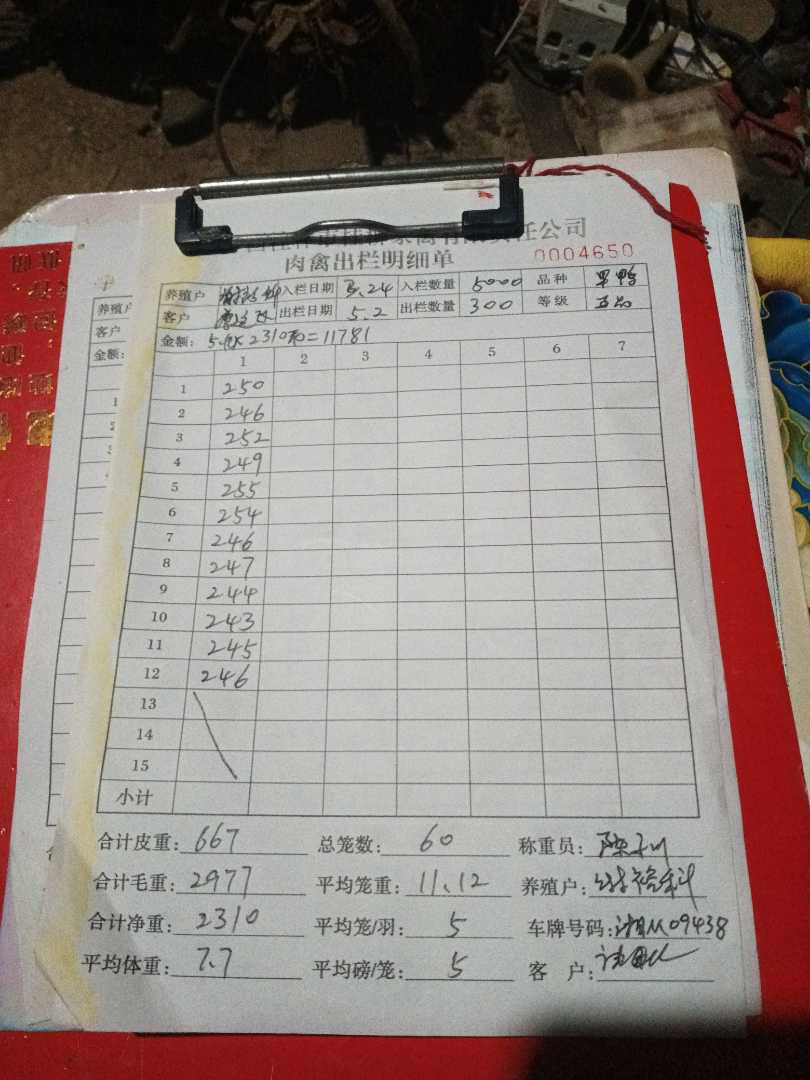 责任公司
肉禽出栏明细单 0004650
养殖户 入栏日期 3.24 入栏数量 5000 品种 旱鸭
客户 出栏日期 5.2 出栏数量 300 等级 正品
金额: 5.1×2310 = 11781
1 2 3 4 5 6 7
1 250
2 246
3 252
4 249
5 255
6 254
7 246
8 247
9 244
10 243
11 245
12 246
13
14
15
小计
合计皮重: 667 总笼数: 60 称重员:
合计毛重: 2977 平均笼重: 11.12 养殖户:
合计净重: 2310 平均笼/羽: 5 车牌号码: 09438
平均体重: 7.7 平均磅/笼: 5 客 户:
养殖户
客户
金额: